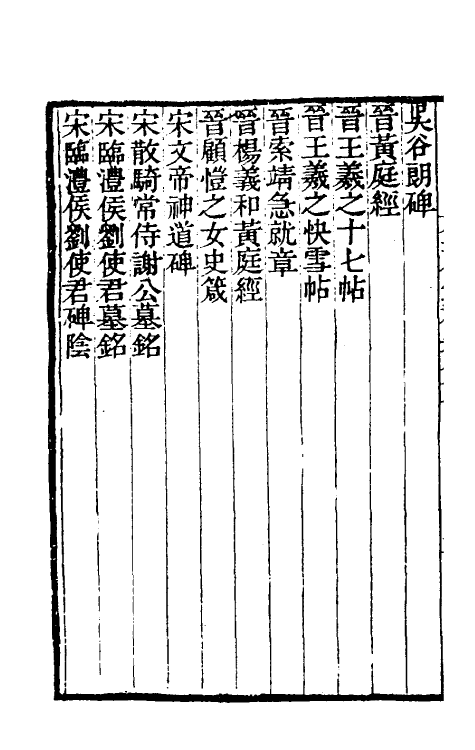 吴谷朗碑
晉黃庭經
晉王羲之十七帖
晉王羲之快雪帖
晉索靖急就章
晉楊羲和黃庭經
晉顧愷之女史箴
宋文帝神道碑
宋散騎常侍謝公墓銘
宋臨澧侯劉使君墓銘
宋臨澧侯劉使君碑陰